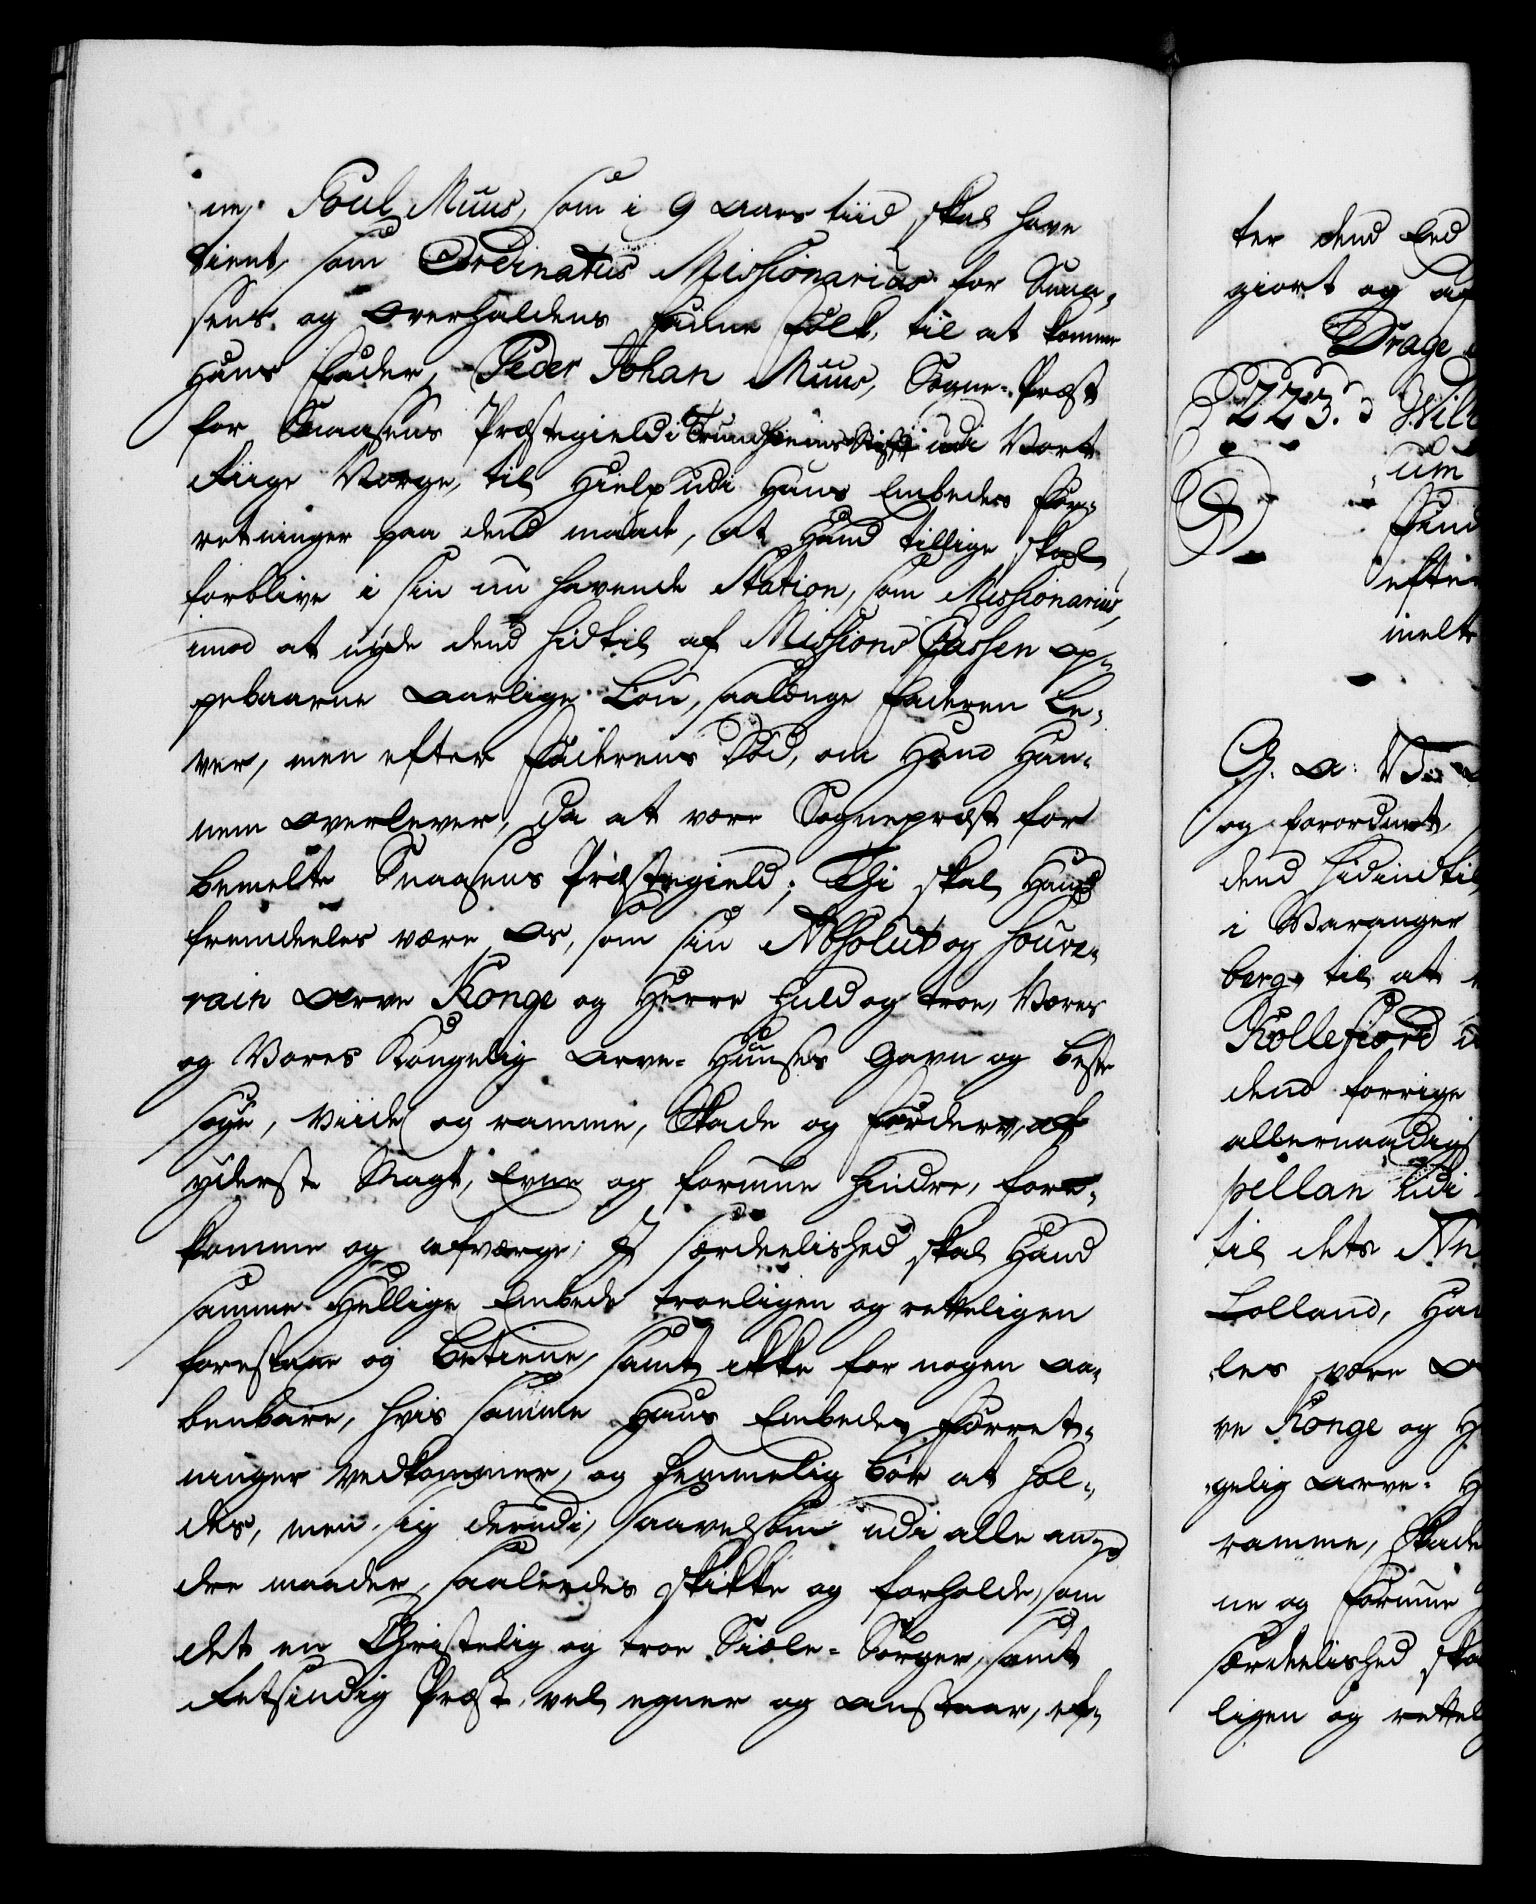 ne, Poul Muus, som i 9 Aars tiid skal have
tient, som Ordinatus Missionarius for Snaa-
sens og Overhaldens Finne Folk, til at komme
Hans Fader, Peder Johan Muus, Sogne-Præst
for Snaasens Præstegield i Trundhiems Stift udi Vort
Riige Norge, til Hielp udi Hans Embedes For-
retninger paa dend maade, at Hand tillige skal
forblive i sin nu havende Station, som Missionarius,
imod at nyde dend hidtil af Missions Cassen op-
pebaarne Aarlige Løn, saalænge Faderen Le-
ver, men efter Faderens Død, om Hand Han-
nem overlever, da at være Sognepræst for
bemelte Snaasens Præstegield; Thi skal Hand
fremdeeles være Os, som sin Absolut og Souve-
rain Arve Konge og Herre huld og troe, Vores
og Vores Kongelig Arve-Huuses Gavn og beste
søge, Viide og ramme, Skade og Forderv, af
yderste Magt, Evne og formue hindre, fore-
komme og afværge; I særdeelished skal Hand
samme Hellige Embede troeligen og retteligen
forestaae og betiene, samt ikke for nogen aa-
benbare, hvis samme Hans Embedes Forret-
ninger vedkommer, og hemmelig bør at hol-
des, men sig derudi, saavelsom udi alle an-
dre maader, saaledes skikke og forholde, som
det en Christelig og troe Siæle-Sørger, samt
Retsindig Præst, vel egner og anstaaer, ef-
ter dend Eed
giort og af
Drage
223. Wilh
um
Find
efter
melte
G. A: V.
og forordnet
dend hidindtil
i Waranger
berg, til at
Kollefiord
dend forrige
allernaadigst
pellan udi
til dets An
Lolland, Han
les være O
ve Konge og H
gelig Arve-H
ramme, Skade
ne og Formue
særdeelished ska
ligen og rettel